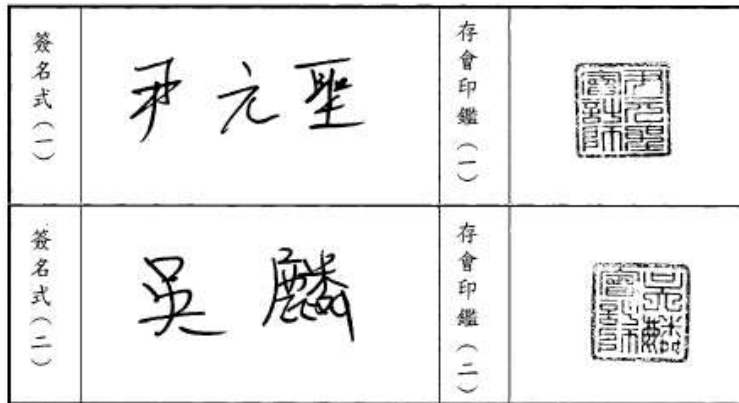 簽名式（一）
尹元聖
存會印鑑（一）
尹元聖會計師
簽名式（二）
吳麟
存會印鑑（二）
吳麟會計師